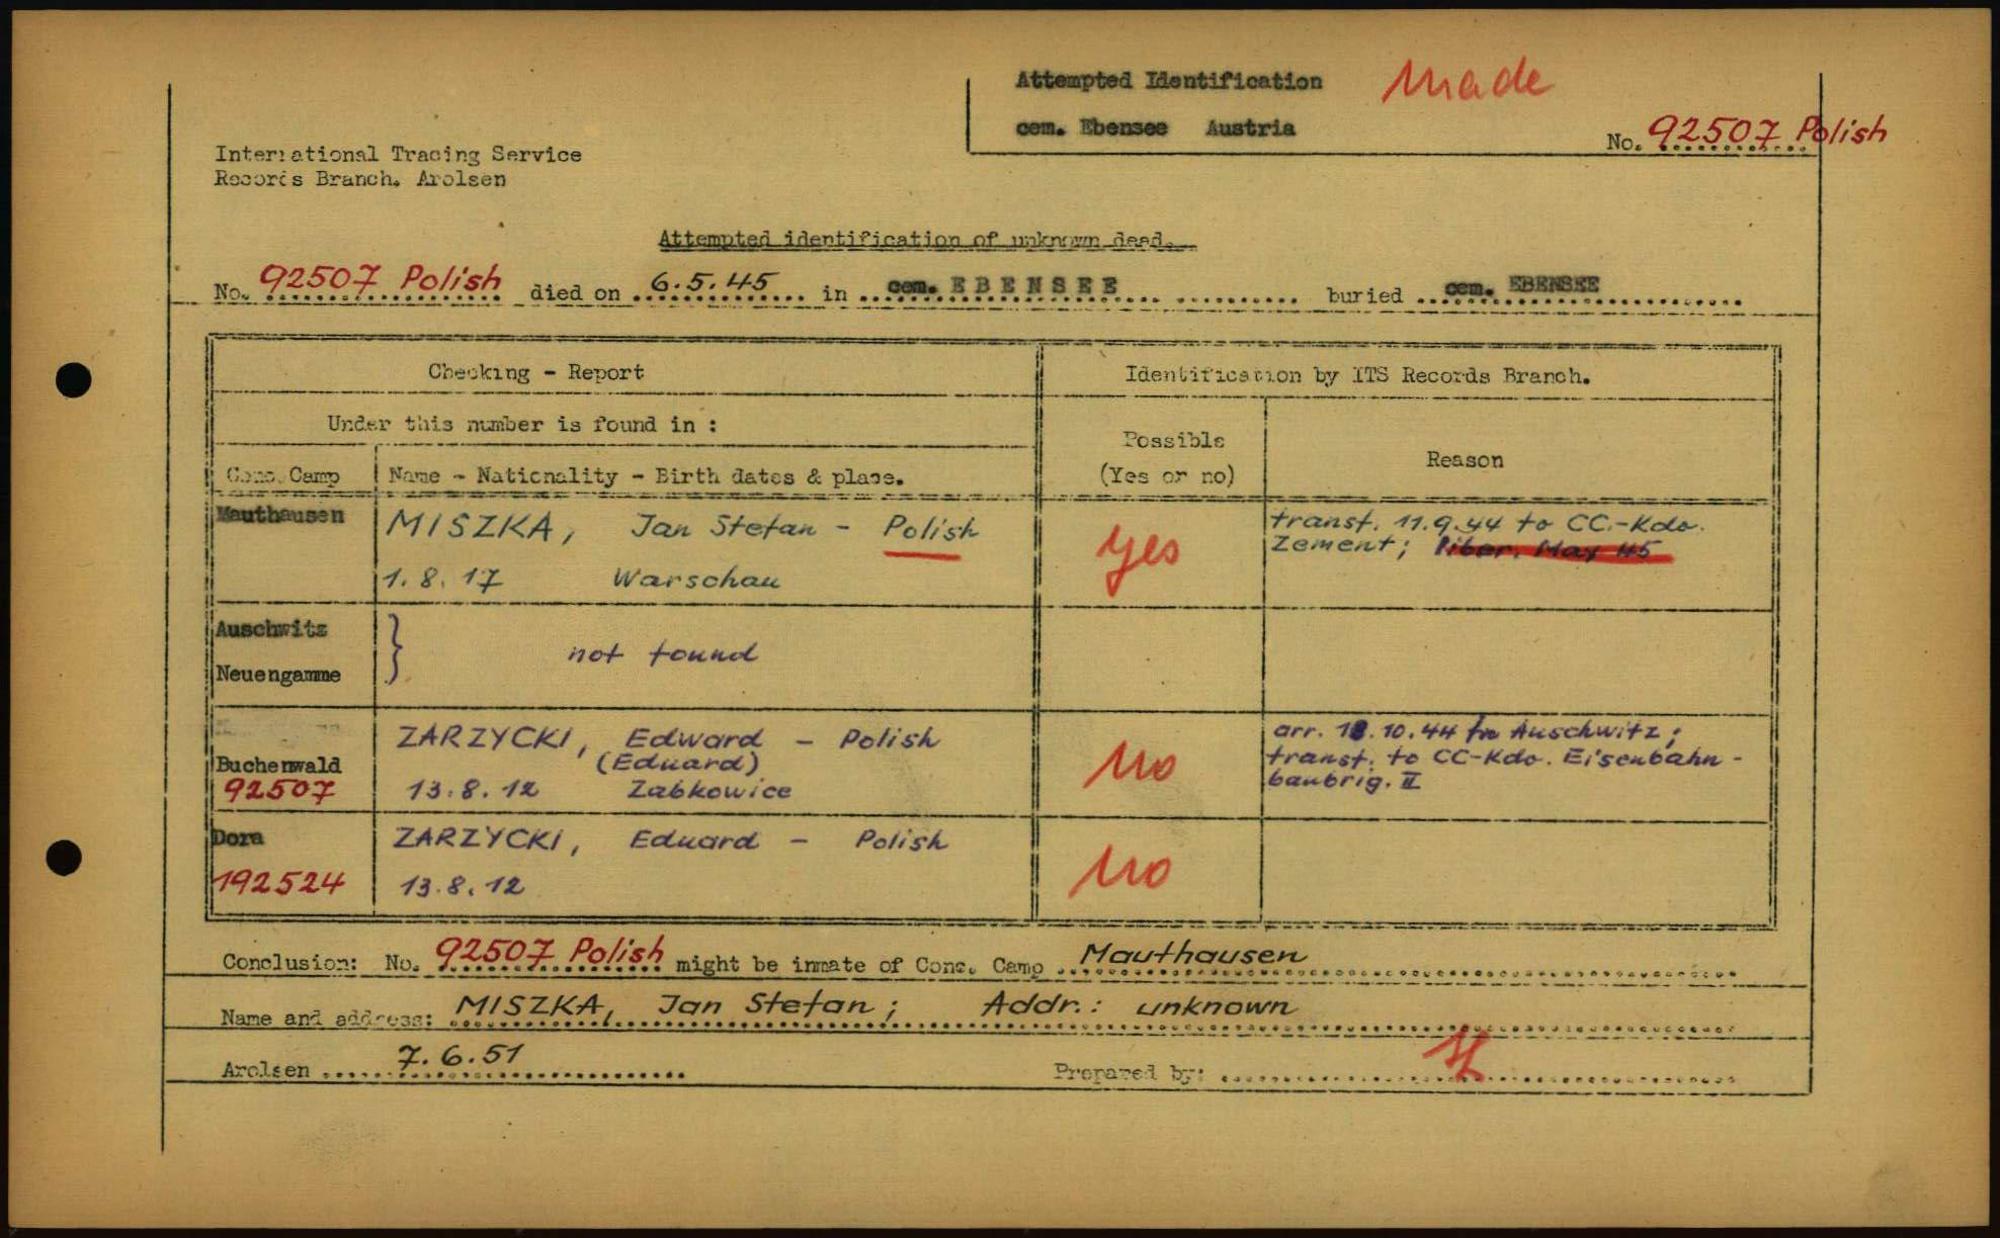 Attempted Identification Made
cem. Ebensee Austria
No. 92507 Polish
International Tracing Service
Records Branch. Arolsen
Attempted identification of unknown dead.
No. 92507 Polish died on 6.5.45 in cem. EBENSEE buried cem. EBENSEE
Checking - Report
Identification by ITS Records Branch.
Under this number is found in :
Possible
(Yes or no)
Reason
Conc. Camp
Name - Nationality - Birth dates & place.
Mauthausen
MISZKA, Jan Stefan - Polish
1.8.17 Warschau
yes
transf. 11.9.44 to CC.-Kdo.
Zement; liber. May 45
Auschwitz
Neuengamme
} not found
Buchenwald
92507
ZARZYCKI, Edward - Polish
(Eduard)
13.8.12 Zabkowice
No
arr. 10.44 fr. Auschwitz;
transf. to CC-Kdo. Eisenbahn-
baubrig. II
Dora
192524
ZARZYCKI, Eduard - Polish
13.8.12
No
Conclusion: No. 92507 Polish might be inmate of Conc. Camp Mauthausen
Name and address: MISZKA, Jan Stefan; Addr.: unknown
Arolsen 7.6.51
Prepared by: